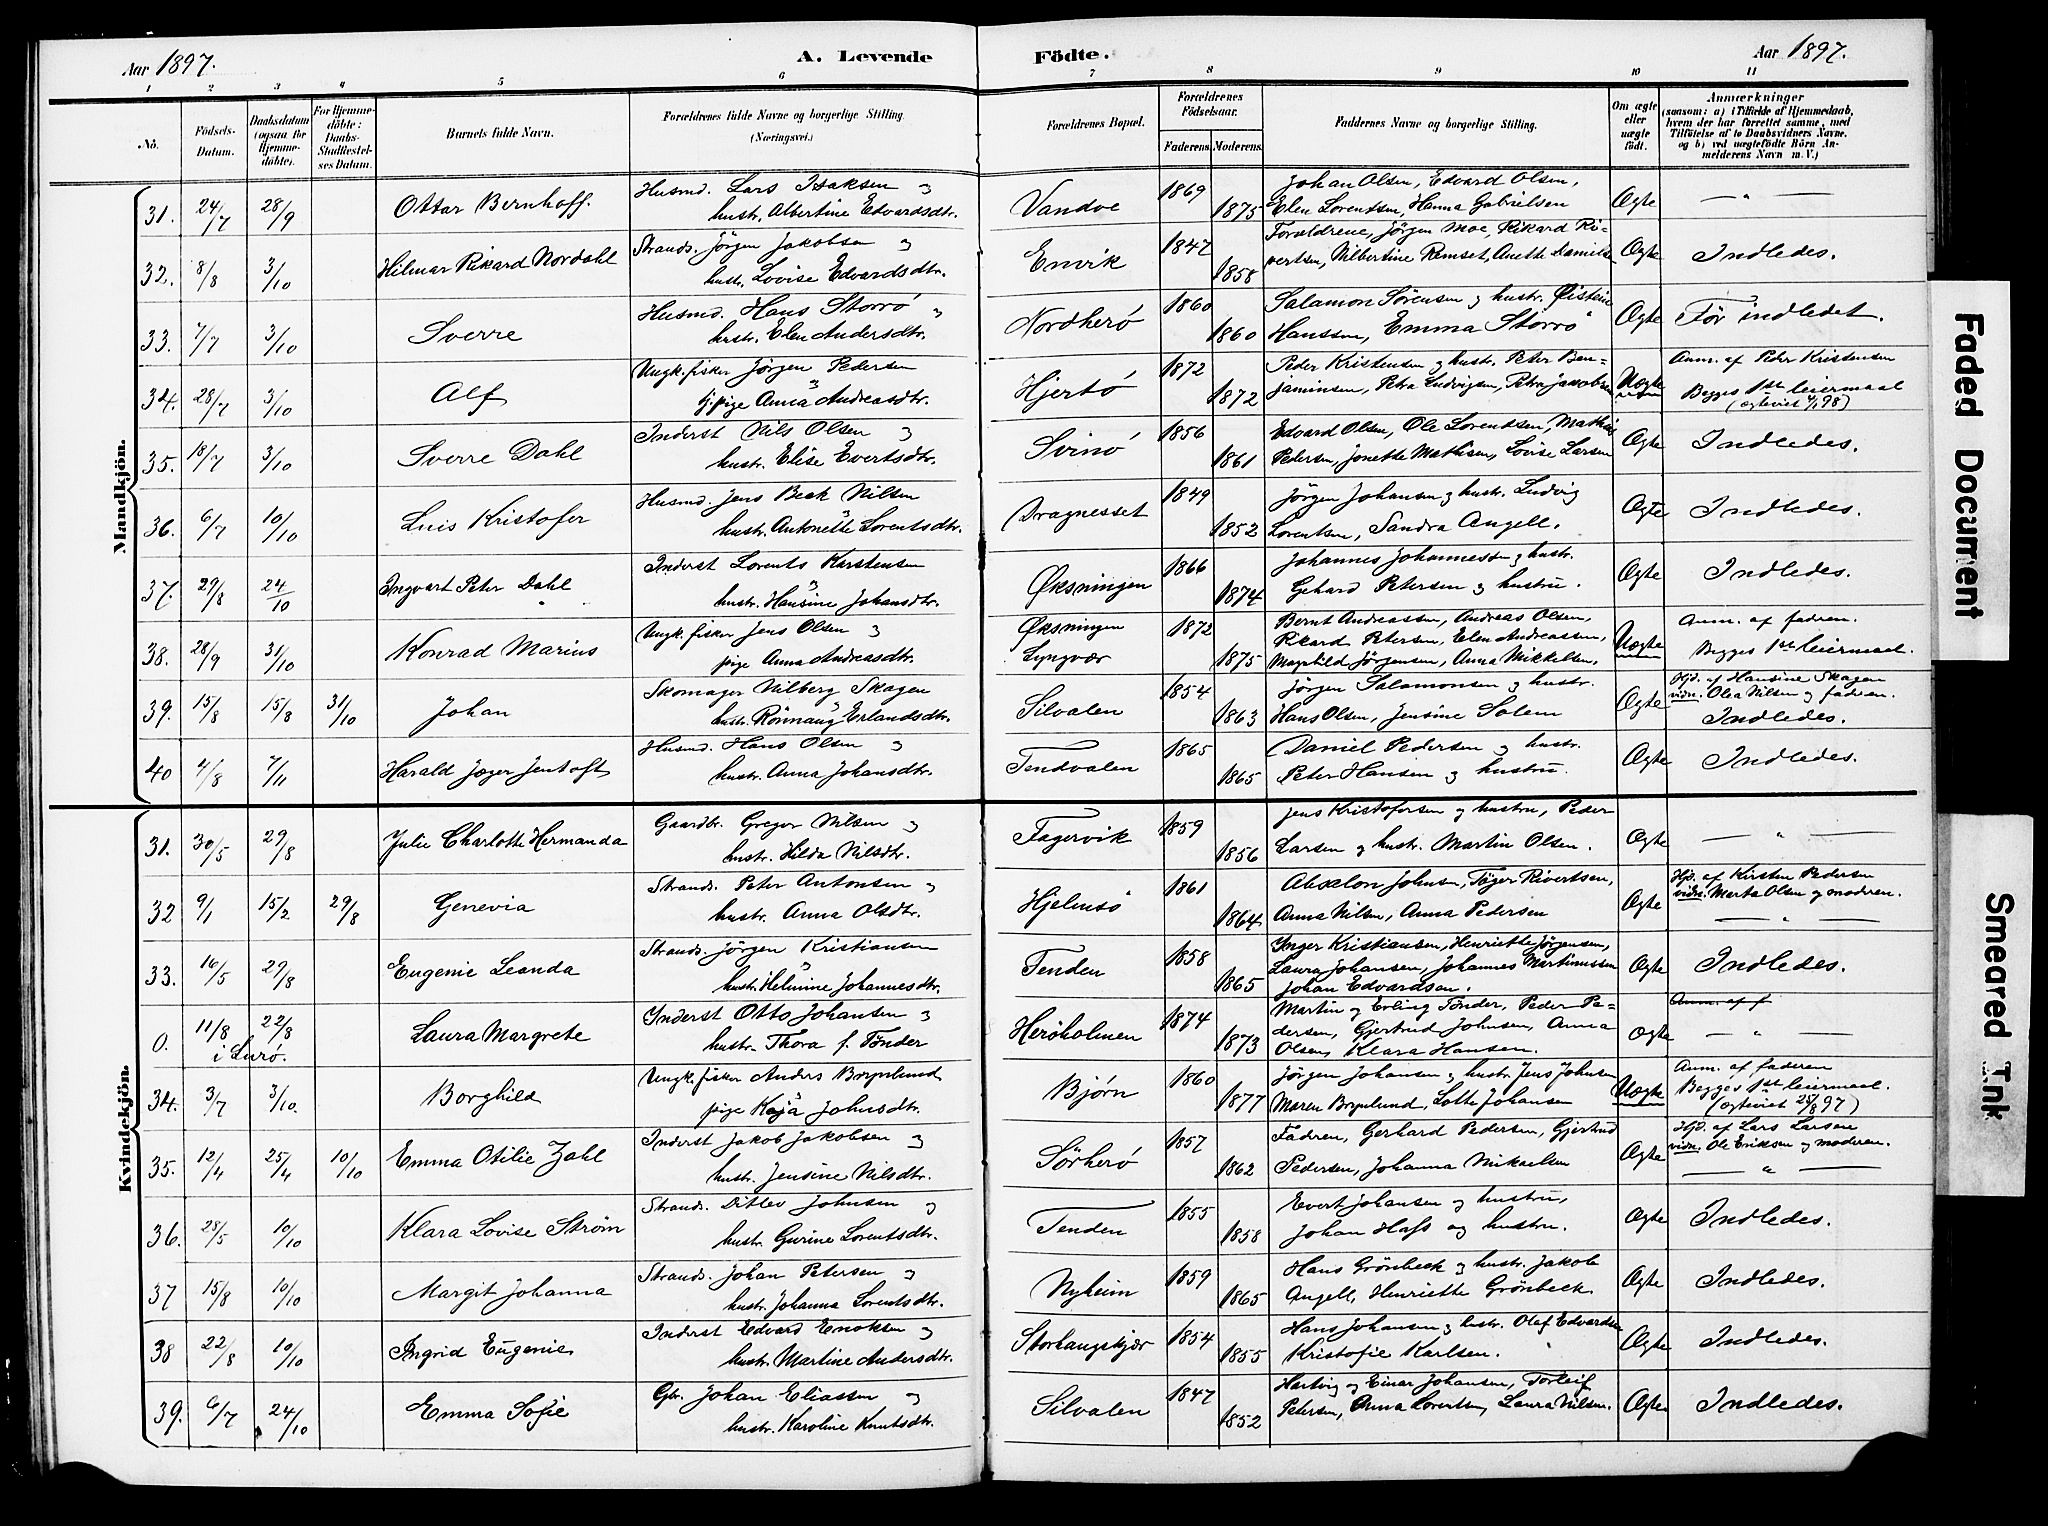 Aar 1897. A. Levende Födte. Aar 1897.
1 2 3 4 5 6 7 8 9 10 11
No. Födsels-Datum. Daabsdatum (ogsaa for Hjemmedöbte). For Hjemmedöbte: Daabs-Stadfæstelses Datum. Barnets fulde Navn. Forældrenes fulde Navne og borgerlige Stilling (Næringsvei.) Forældrenes Bopæl. Forældrenes Födselsaar. Faderens Moderens. Faddernes Navne og borgerlige Stilling. Om ægte eller uægte födt. Anmærkninger (saasom: a) i Tilfælde af Hjemmedaab, hvem der har forrettet samme, med Tilföielse af to Daabsvidners Navne, og b) ved uægtefödte Börn Anmelderens Navn m. V.)
Mandkjön.
31. 24/7 28/9 Ottar Bernhoff. Husmd. Lars Isaksen og Vandve 1869 Johan Olsen, Edvard Olsen, Ægte — " —
hustr. Albertine Edvardsdtr. 1875 Elen Lorentsen, Hanna Gabrielsen
32. 8/8 3/10 Hilmar Rikard Nordahl Strands. Jörgen Jakobsen og Envik 1847 Forældrene, Jörgen Moe, Rikard Ri- Ægte Indledes.
hustr. Lovise Edvardsdtr. 1858 vertsen, Nilbertine Remset, Anette Danielsen
33. 7/7 3/10 Sverre Husmd. Hans Storrö og Nordherö 1860 Salamon Sörensen og hustr. Øistein Ægte Før indledet.
hustr. Elen Andersdtr. 1860 Hanssen, Emma Storrö
34. 28/7 3/10 Alf Ungk. fisker Jörgen Pedersen Hjertö 1872 Peder Kristensen og hustr. Peter Ben- Uægte Anm. af Peter Kristensen
pige Anna Andreasdtr. 1872 jaminsen, Petra Ludvigsen, Petra Jakobsen Begges 1st leiermaal
(ægteviet 98)
35. 18/7 3/10 Sverre Dahl Inderst Nils Olsen og Svinö 1856 Edvard Olsen, Ole Lorentsen, Mathias Ægte Indledes.
hustr. Elise Evertsdtr. 1861 Pedersen, Jonette Mathisen, Lovise Larsen
36. 6/7 10/10 Luis Kristofer Husmd. Jens Beck Nilsen Dragnesset 1849 Jörgen Johansen og hustr. Ludvig Ægte Indledes.
hustr. Antonette Lorentsdtr. 1852 Lorentsen, Sandra Angell.
37. 29/8 24/10 Ingvart Peter Dahl Inderst Lorents Karstensen Øksningen 1866 Johannes Johannessen og hustr. Ægte Indledes.
hustr. Hansine Johansdtr. 1874 Gehard Petersen og hustru.
38. 28/9 31/10 Konrad Marius Ungk. fisker Jens Olsen og Øksningen 1872 Bernt Andreassen, Andreas Olsen, Uægte Anm. af fadren.
pige Anna Andreasdtr. Lyngvær 1875 Rikard Petersen, Elen Andreassen, Begges 1st leiermaal.
Magthild Jörgensen, Anna Mikkelsen,
39. 15/8 15/8 31/10 Johan Skomager Nilberg Skagen Silvalen 1854 Jörgen Salamonsen og hustr. Ægte Hjd. af Hansine Skagen
hustr. Rönnaug Erlandsdtr. 1863 Hans Olsen, Jensine Solem vidn. Olea Nilsen og fadren.
Indledes.
40 4/8 7/11 Harald Jæger Jentoft Husmd. Hans Olsen og Tendvalen 1865 Daniel Pedersen og hustr. Ægte Indledes.
hustr. Anna Johansdtr. 1865 Peter Hansen og hustru.
Kvindekjön.
31. 30/5 29/8 Julie Charlotte Hermanda Gaardbr. Gregor Nilsen og Fagervik 1859 Jens Kristofersen og hustru, Peder Ægte — " —
hustr. Hilda Nilsdtr. 1856 Larsen og hustr. Martin Olsen.
32 9/1 15/2 29/8 Genevia Strands. Peter Antonsen og Hjelmsö 1861 Absalon Johnsen, Töger Rivertsen, Ægte Hjd. af Kirsten Pedersen
hustr. Anna Olsdtr. 1864. Anna Nilsen, Anna Pedersen vidn. Marta Olsen og modren.
— " —
33. 16/5 29/8 Eugenie Leanda Strands. Jörgen Kristiansen Tenden 1858 Inger Kristiansen, Henriette Jörgensen, Ægte Indledes.
hustr. Helmine Johannesdtr. 1865 Laura Johansen, Johannes Martinussen
Johan Edvardsen.
0. 11/8 22/8 Laura Margrete Inderst Otto Johansen og Heröholmen 1874 Martin og Erling Tönder, Peder Pe- Ægte Anm. af f
i Lurö. hustr. Thora f. Tönder 1873 dersen, Gjertrud Johnsen, Anna — " —
Olsen, Klara Hansen.
34. 3/7 3/10. Borghild Ungk. fisker Anders Brynlund Bjørn 1860 Jörgen Johansen og hustr. Jens Johnsen Uægte Anm. af faderen
pige Kaja Johnsdtr. 1877 Maren Brynlund, Lotte Johansen Begges 1st leiermaal.
(ægteviet 25/8 97)
35. 12/4 25/4 10/10 Emma Otilie Zahl Inderst Jakob Jakobsen og Sörherö 1857 Fadren, Gerhard Pedersen, Gjertrud Ægte Hjd. af Lars Larsen
hustr. Jensine Nilsdtr. 1862 Pedersen, Johanna Mikaelsen vidn. Ole Eriksen og moderen.
— " —
36. 28/5 10/10 Klara Lovise Strøm Strands. Ditlev Johnsen og Tenden 1855 Evert Johansen og hustru, Ægte Indledes.
hustr. Gurine Lorentsdtr. 1858 Johan Hafs og hustru.
37 15/8 10/10 Margit Johanna Strands. Johan Petersen og Nyheim 1859 Hans Grönbeck og hustr. Jakob Ægte Indledes.
hustr. Johanna Lorentsdtr. 1865 Angell, Henriette Grönbeck.
38 22/8 10/10 Ingrid Eugenie Inderst Edvard Enoksen og Storhaugskjær 1854 Hans Johansen og hustr. Olaf Edvardsen Ægte Indledes.
hustr. Martine Andersdtr. 1855 Kristofie Karlsen.
39. 6/7 24/10 Emma Sofie Gbr. Johan Eliassen og Silvalen 1847 Hartvig og Einar Johansen, Torleif Ægte Indledes.
hustr. Karoline Knutsdtr. 1852 Petersen, Anna Lorentsen, Laura Nilsen.
Faded Document
Smeared Ink